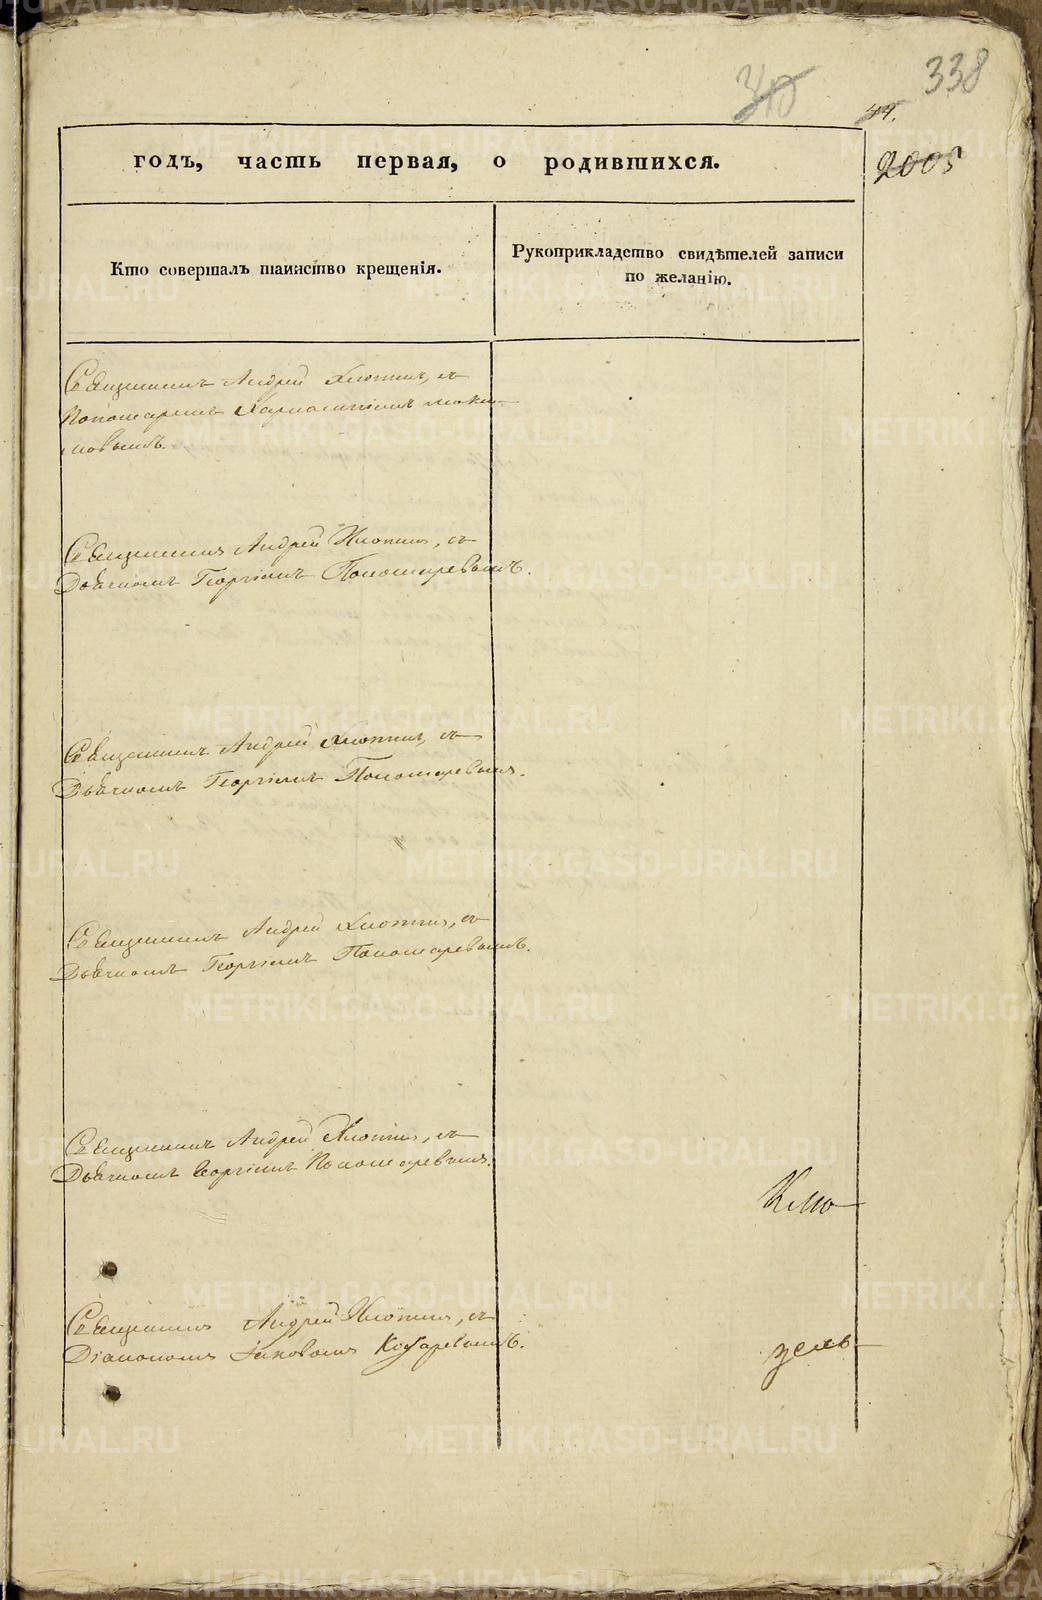 338
310
44.
2005
годъ, часть первая, о родившихся.
Кто совершалъ таинство крещенія.
Рукоприкладство свидѣтелей записи
по желанію.
Священникъ Андрей Хлопинъ, съ
Пономаремъ
Священникъ Андрей Хлопинъ, съ
Дьячкомъ Георгіемъ Пономаревымъ.
Священникъ Андрей Хлопинъ, съ
Дьячкомъ Георгіемъ Пономаревымъ.
Священникъ Андрей Хлопинъ, съ
Дьячкомъ Георгіемъ Пономаревымъ.
Священникъ Андрей Хлопинъ, съ
Дьячкомъ Георгіемъ Пономаревымъ.
Священникъ Андрей Хлопинъ, съ
Діакономъ Іаковомъ
METRIKI.GASO-URAL.RU